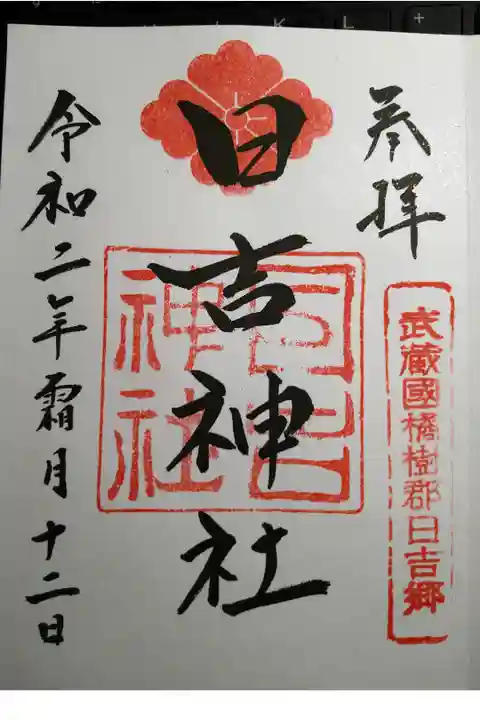 参拝
武蔵國橘樹郡日吉郷
日吉神社
日吉神社
令和二年霜月十二日